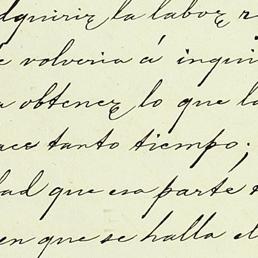 dquirir la labor r
e volveria á inqui
a obtener lo que la
ace tanto tiempo;
dad que esa parte
en que se halla el